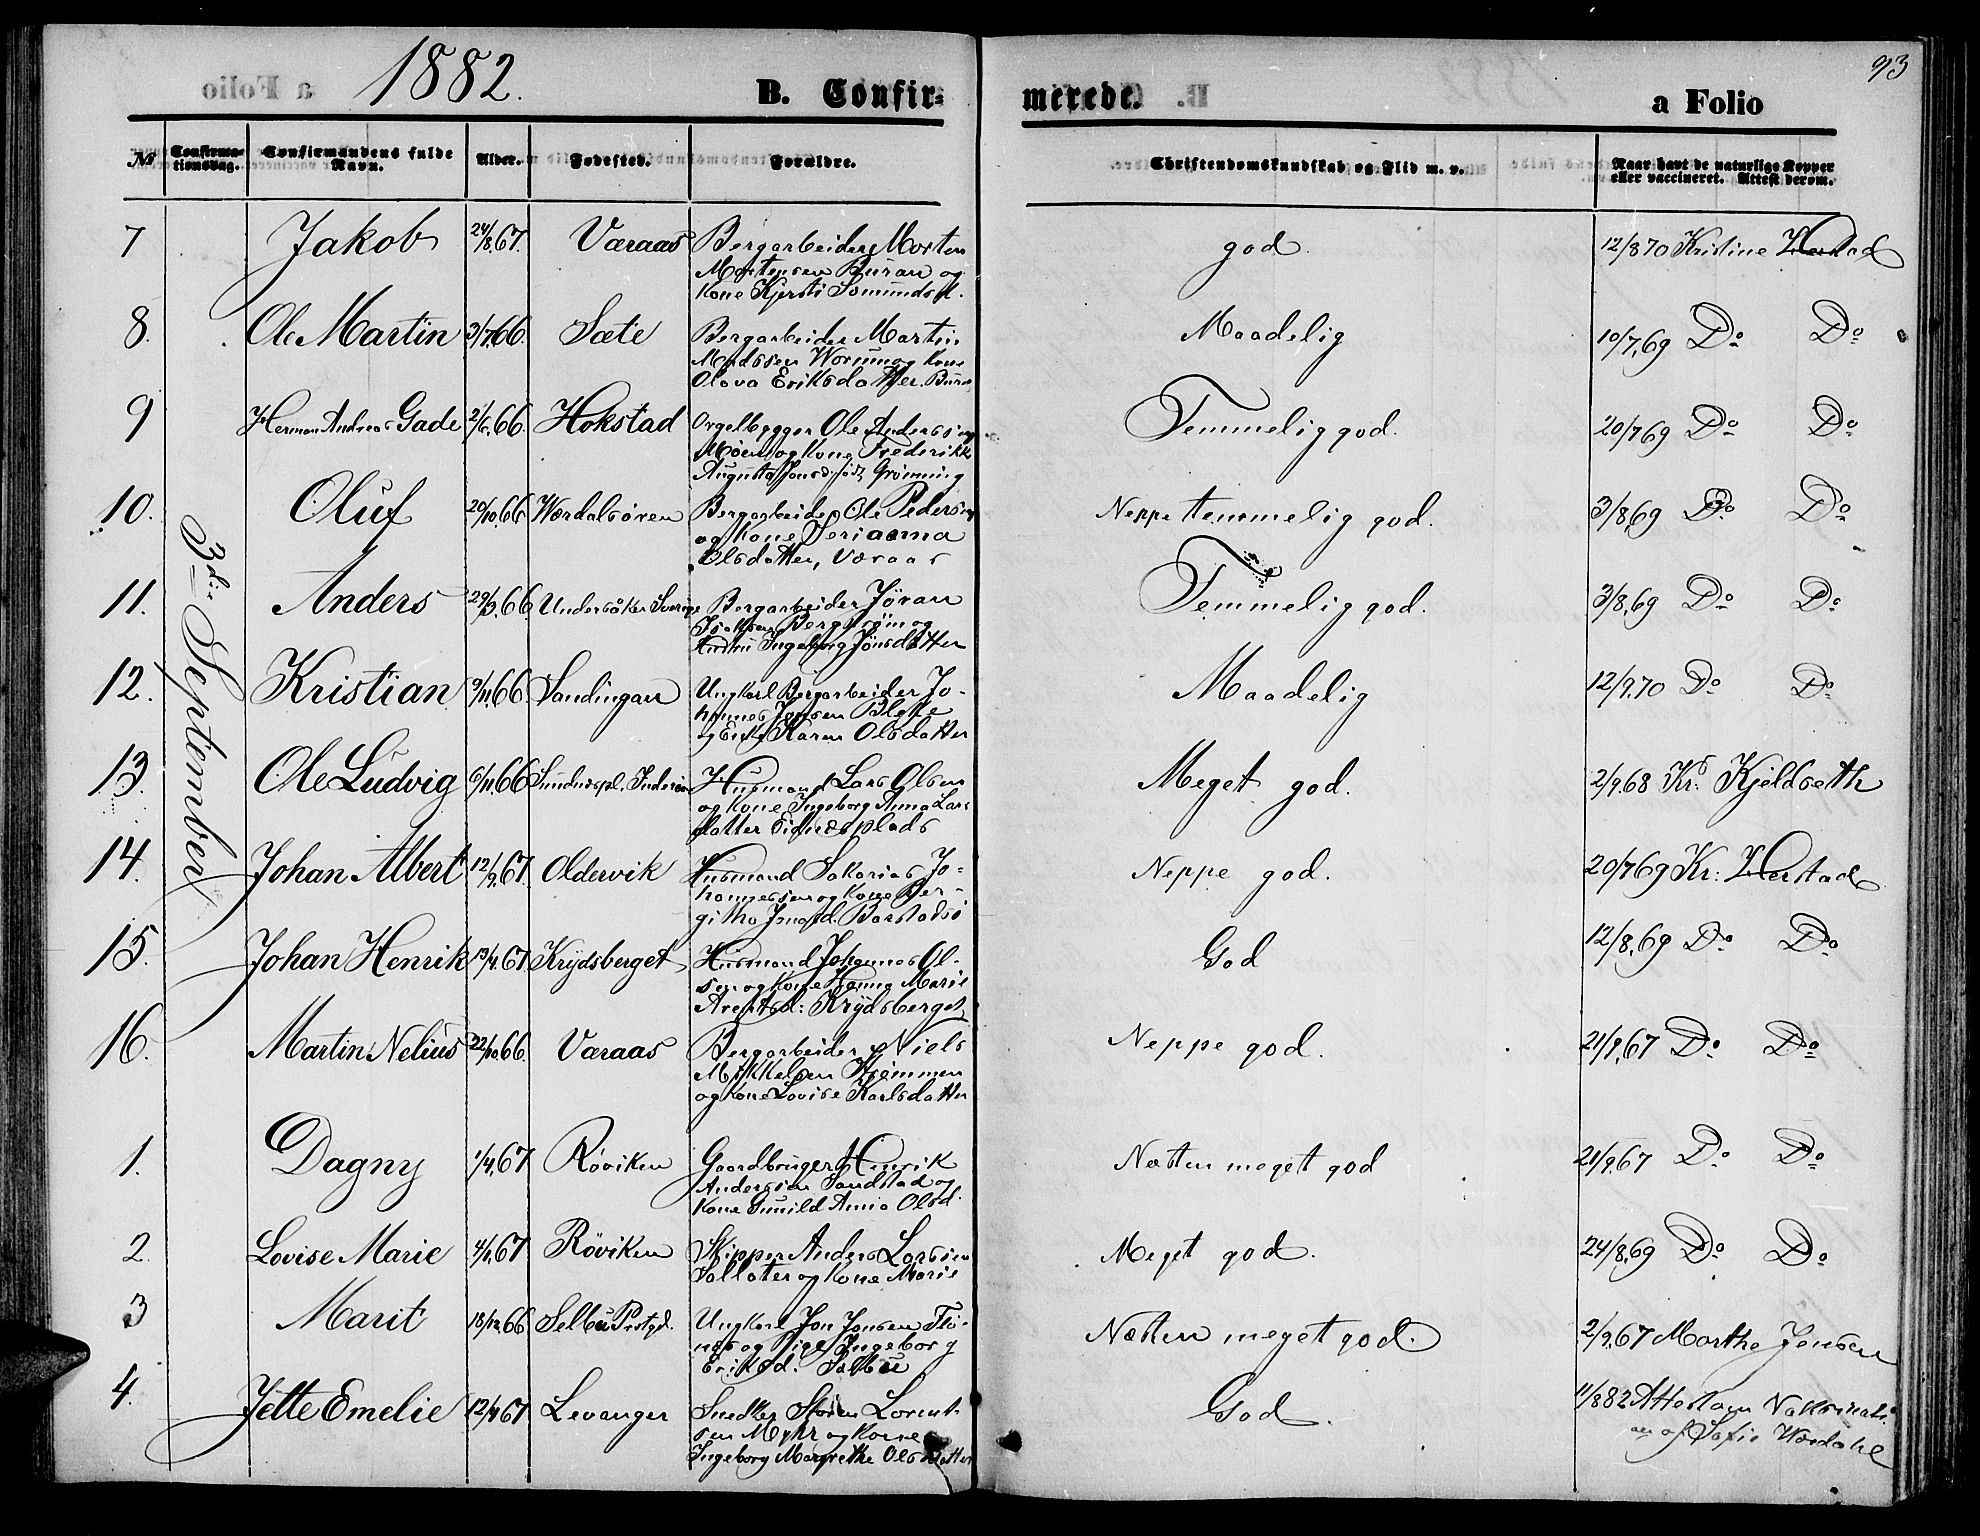 1882.
93
B. Confir-
merede.
a Folio
No
Confirma-
tionsdag.
Confirmandens fulde
Navn.
Alder.
Fødested.
Forældre.
Christendomskundskab og Flid m. v.
Naar havt de naturlige Kopper
eller vaccineret. Attest derom.
3die September
7 Jakob 24/8.67. Væraas Bergarbeider Morten god. 12/8.70 Kristine Werstad
Mortensen Buran og
Kone Kjersti Somundsd.
8. Ole Martin 3/7.66. Sæte Bergarbeider Martin Maadelig 10/7.69 Do Do
Madssen Worum og Kone
Olava Eriksdatter.
9 Herman Andreas Gade 2/6.66. Hokstad Orgelbygger Ole Anderssen Temmelig god. 20/7.69 Do Do
Moen og Kone Frederikke
Augusta Jonsd. født Grønning
10. Oluf 20/10.66 Værdalsøren Bergarbeider Ole Pedersen Neppe temmelig god. 3/8.69 Do Do
og Kone Serianna
Olsdatter, Væraas
11. Anders 29/3.66 Undersåker Sverige Bergarbeider Jøran Temmelig god. 3/8.69 Do Do
Isaksen Bergstrøm og
Hustru Ingeborg Jønsdatter
12. Kristian 9/11.66. Sandingan Ungkarl Bergarbeider Jo- Maadelig 12/9.70 Do Do
hannes Jensen Slette
og Enke Karen Olsdatter
13. Ole Ludvig 6/11.66 Sundnespl. Inderøen Husmand Lars Olsen Meget god. 2/9.68 Kr. Kjeldseth
og Kone Ingeborg Anna Lars
datter Eidnesplads
14. Johan Albert 12/9.67. Oldervik Husmand Sakarias Jo- Neppe god. 20/7.69 Kr: Werstad
hannessen og Kone Ber-
githa Jonasd. Barstadsø
15. Johan Henrik 13/4.67 Krydsberget Husmand Johannes Ol- God 12/8.69 Do Do
sen og Kone Hanna Marie
Arentsd: Krydsberget
16. Martin Nelius 22/10.66. Væraas Bergarbeider Niels Neppe god. 21/9.67 Do Do
Mikkelsen Strømmen
og Kone Lovise Karlsdatter
1. Dagny 1/4.67 Røviken Gaardbruger Henrik Næsten meget god 21/9.67 Do Do
Anderssen Sandstad og
Kone Gunild Anna Olsd.
2. Lovise Marie 4/1.67 Røviken Skipper Anders Larssen Meget god. 24/8.69 Do Do
Salløter og Kone Marie
3 Marit 18/12.66. Selbu Prstgd. Ungkarl Jon Jonsen Flø- Næsten meget god. 2/9.67 Marthe Jensen
næs og Pige Ingeborg
Eriksd. Selbu
4. Jette Emelie 12/4.67 Levanger Snedker Søren Lorent- God. 11/8 82 Attest om Vaksinati
sen Myhr og Kone on af Sofie Wærdahl
Ingeborg Margrethe Olsdatter